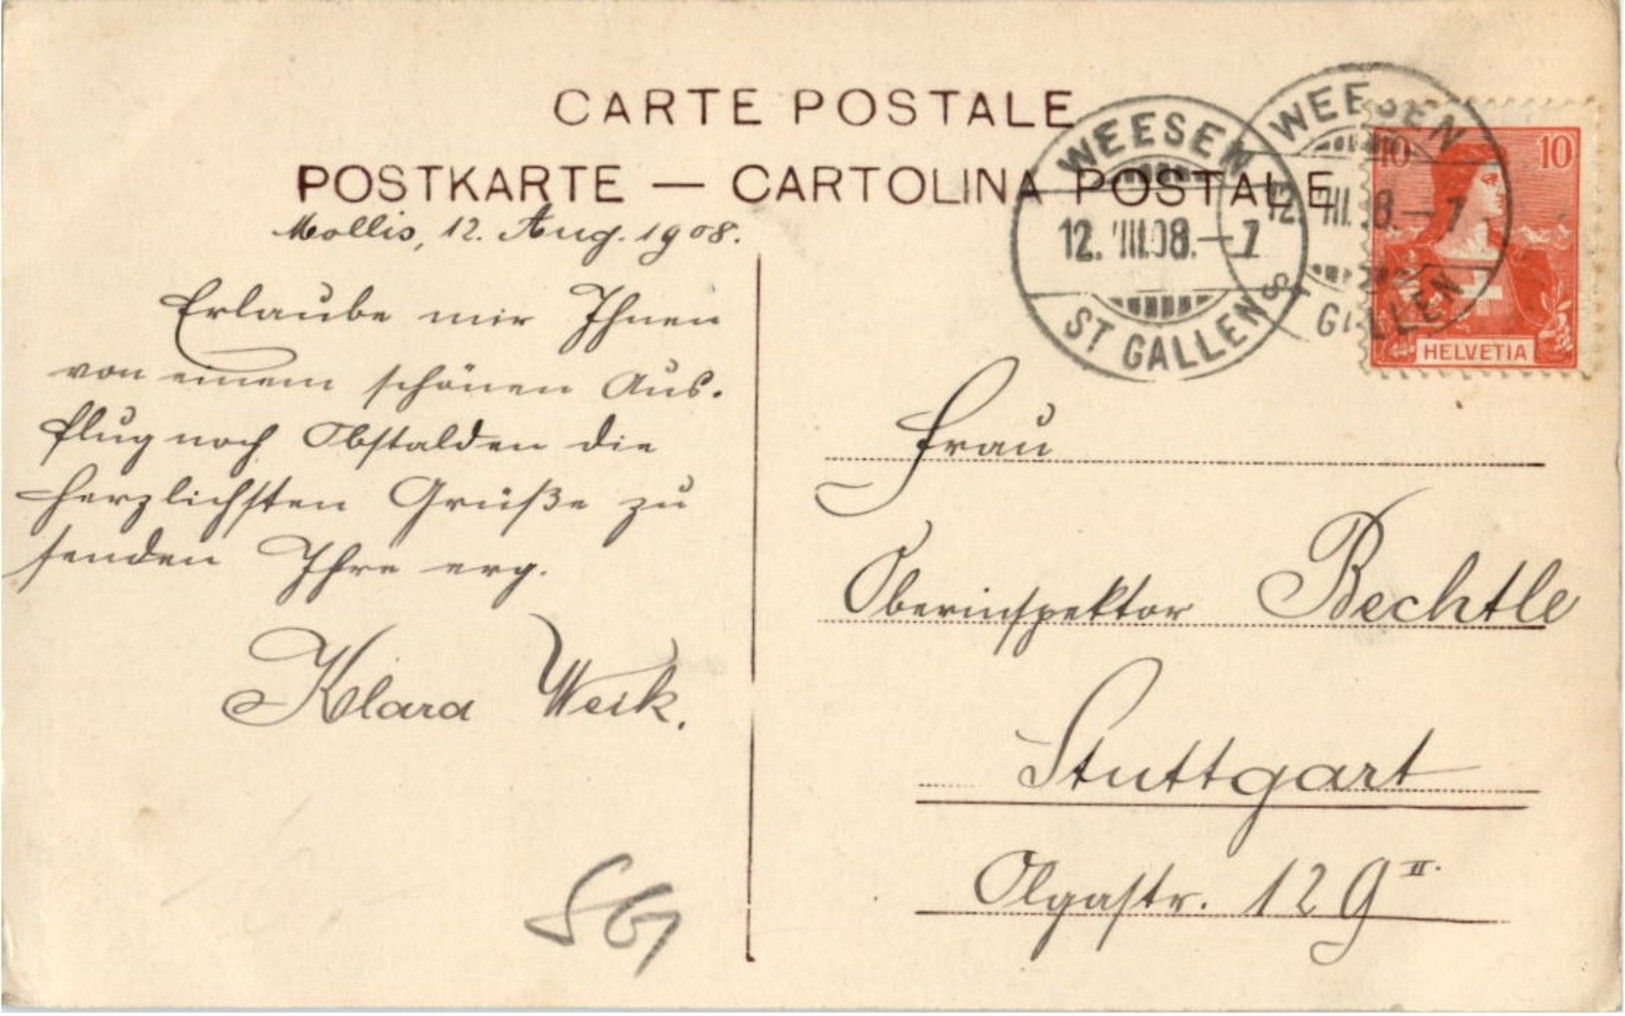 CARTE POSTALE
POSTKARTE — CARTOLINA POSTALE
Mollis, 12. Aug. 1908.
Erlaube mir Ihnen
von einem schönen Aus-
flug nach Obstalden die
herzlichsten Grüße zu
senden Ihre erg.
Klara Weik.
SG
WEESEN
12. VIII.08.–7
ST GALLEN
WEESEN
12. VIII. 08.–7
ST GALLEN
10 10
HELVETIA
Frau
Oberinspektor Bechtle
Stuttgart
Olgastr. 129 II.